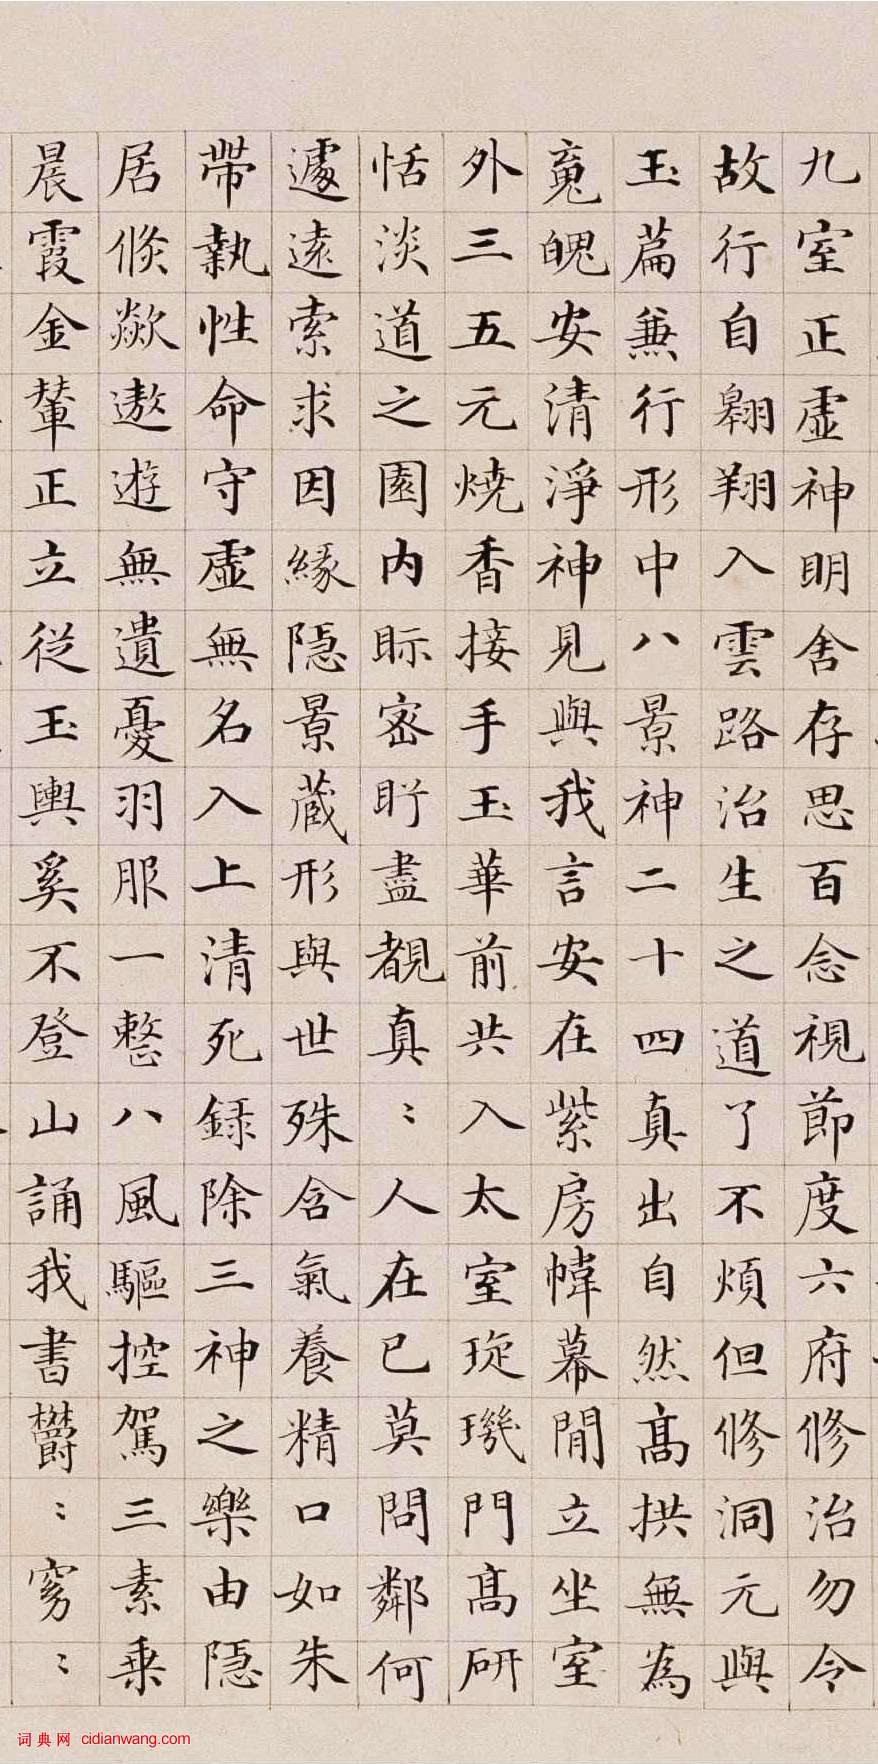 九室正虛神明舍存思百念視節度六府修治勿令
故行自翱翔入雲路治生之道了不煩但修洞元與
玉篇兼行形中八景神二十四真出自然高拱無為
魂魄安清淨神見與我言安在紫房幃幕閒立坐室
外三五元燒香接手玉華前共入太室琁璣門高研
恬淡道之園內眎密盻盡覩真〻人在已莫問鄰何
遽遠索求因緣隱景藏形與世殊含氣養精口如朱
帶執性命守虛無名入上清死錄除三神之樂由隱
居倏歘遨遊無遺憂羽服一整八風驅控駕三素乘
晨霞金輦正立從玉輿奚不登山誦我書欝〻窈〻
词典网 cidianwang.com